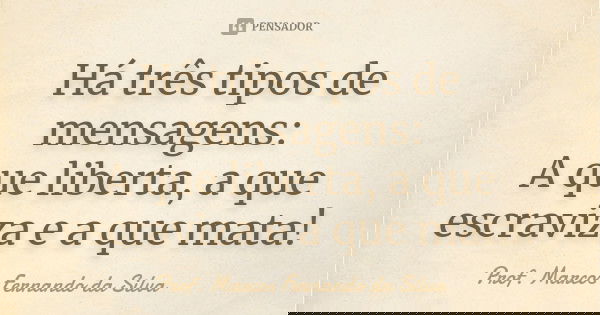 PENSADOR
Há três tipos de
mensagens:
A que liberta, a que
escraviza e a que mata!
Prof. Marcos Fernando da Silva